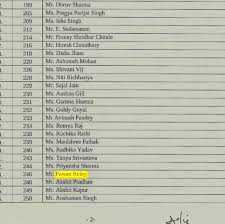 199 Mr. Dhruv Sharma
205 Ms. Pragya Parijat Singh
206 Ms. Isha Singh
212 Mr. E. Sudarsanan
214 Mr. Pranay Shridhar Chitale
216 Mr. Hitesh Choudhary
218 Ms. Disha Jham
220 Mr. Ashutosh Mohan
226 Ms. Shivani Vij
228 Ms. Niti Richhariya
229 Mr. Sajal Jain
230 Ms. Aashna Gill
231 Ms. Garima Sharma
232 Ms. Goldy Goyal
233 Mr. Avinash Pandey
234 Ms. Remya Raj
238 Ms. Ruchika Rathi
239 Mr. Maulshree Pathak
240 Ms. Radhika Yadav
243 Ms. Tanya Srivastava
244 Ms. Priyansha Sharma
246 Mr. Pawan Reley
248 Mr. Akshit Pradhan
249 Mr. Akshit Kapur
250 Mr. Anshuman Singh
-2-